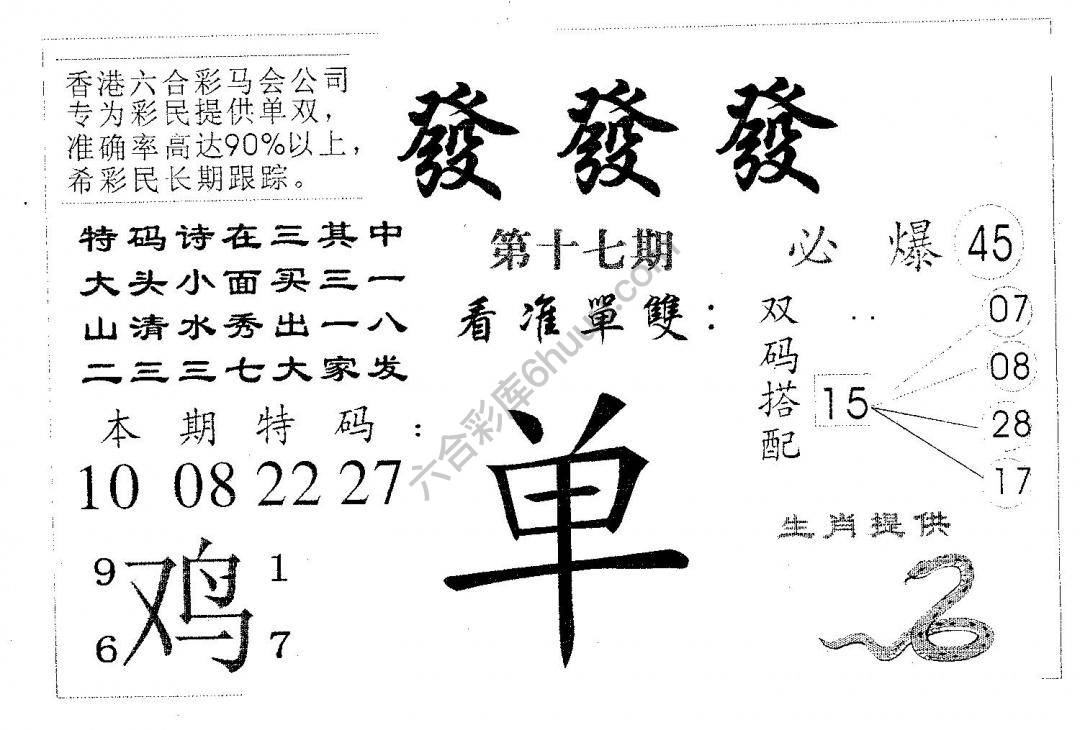 香港六合彩马会公司
专为彩民提供单双，
准确率高达90%以上，
希彩民长期跟踪。
發發發
特码诗在三其中
大头小面买三一
山清水秀出一八
二三三七大家发
第十七期
看准單雙：
单
必爆 45
双码搭配
15
07
08
28
17
本期特码：
10 08 22 27
鸡
9 1
6 7
生肖提供
六合彩库6huu.com